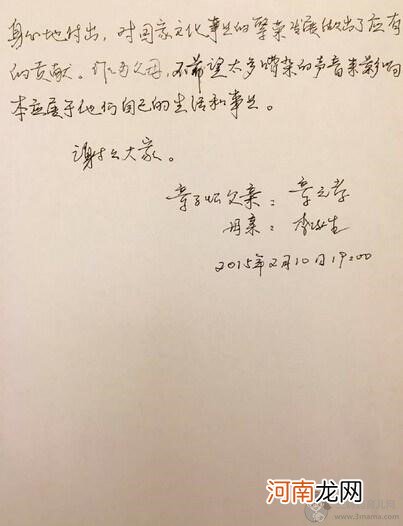 身心地付出，对国家文化事业的繁荣发展做出了应有
的贡献。作为父母，不希望太多嘈杂的声音来影响
本应属于他们自己的生活和事业。
谢谢大家。
章子怡父亲：章元孝
母亲：李涿生
2015年2月10日19:00
河南龙网
www.3mama.com